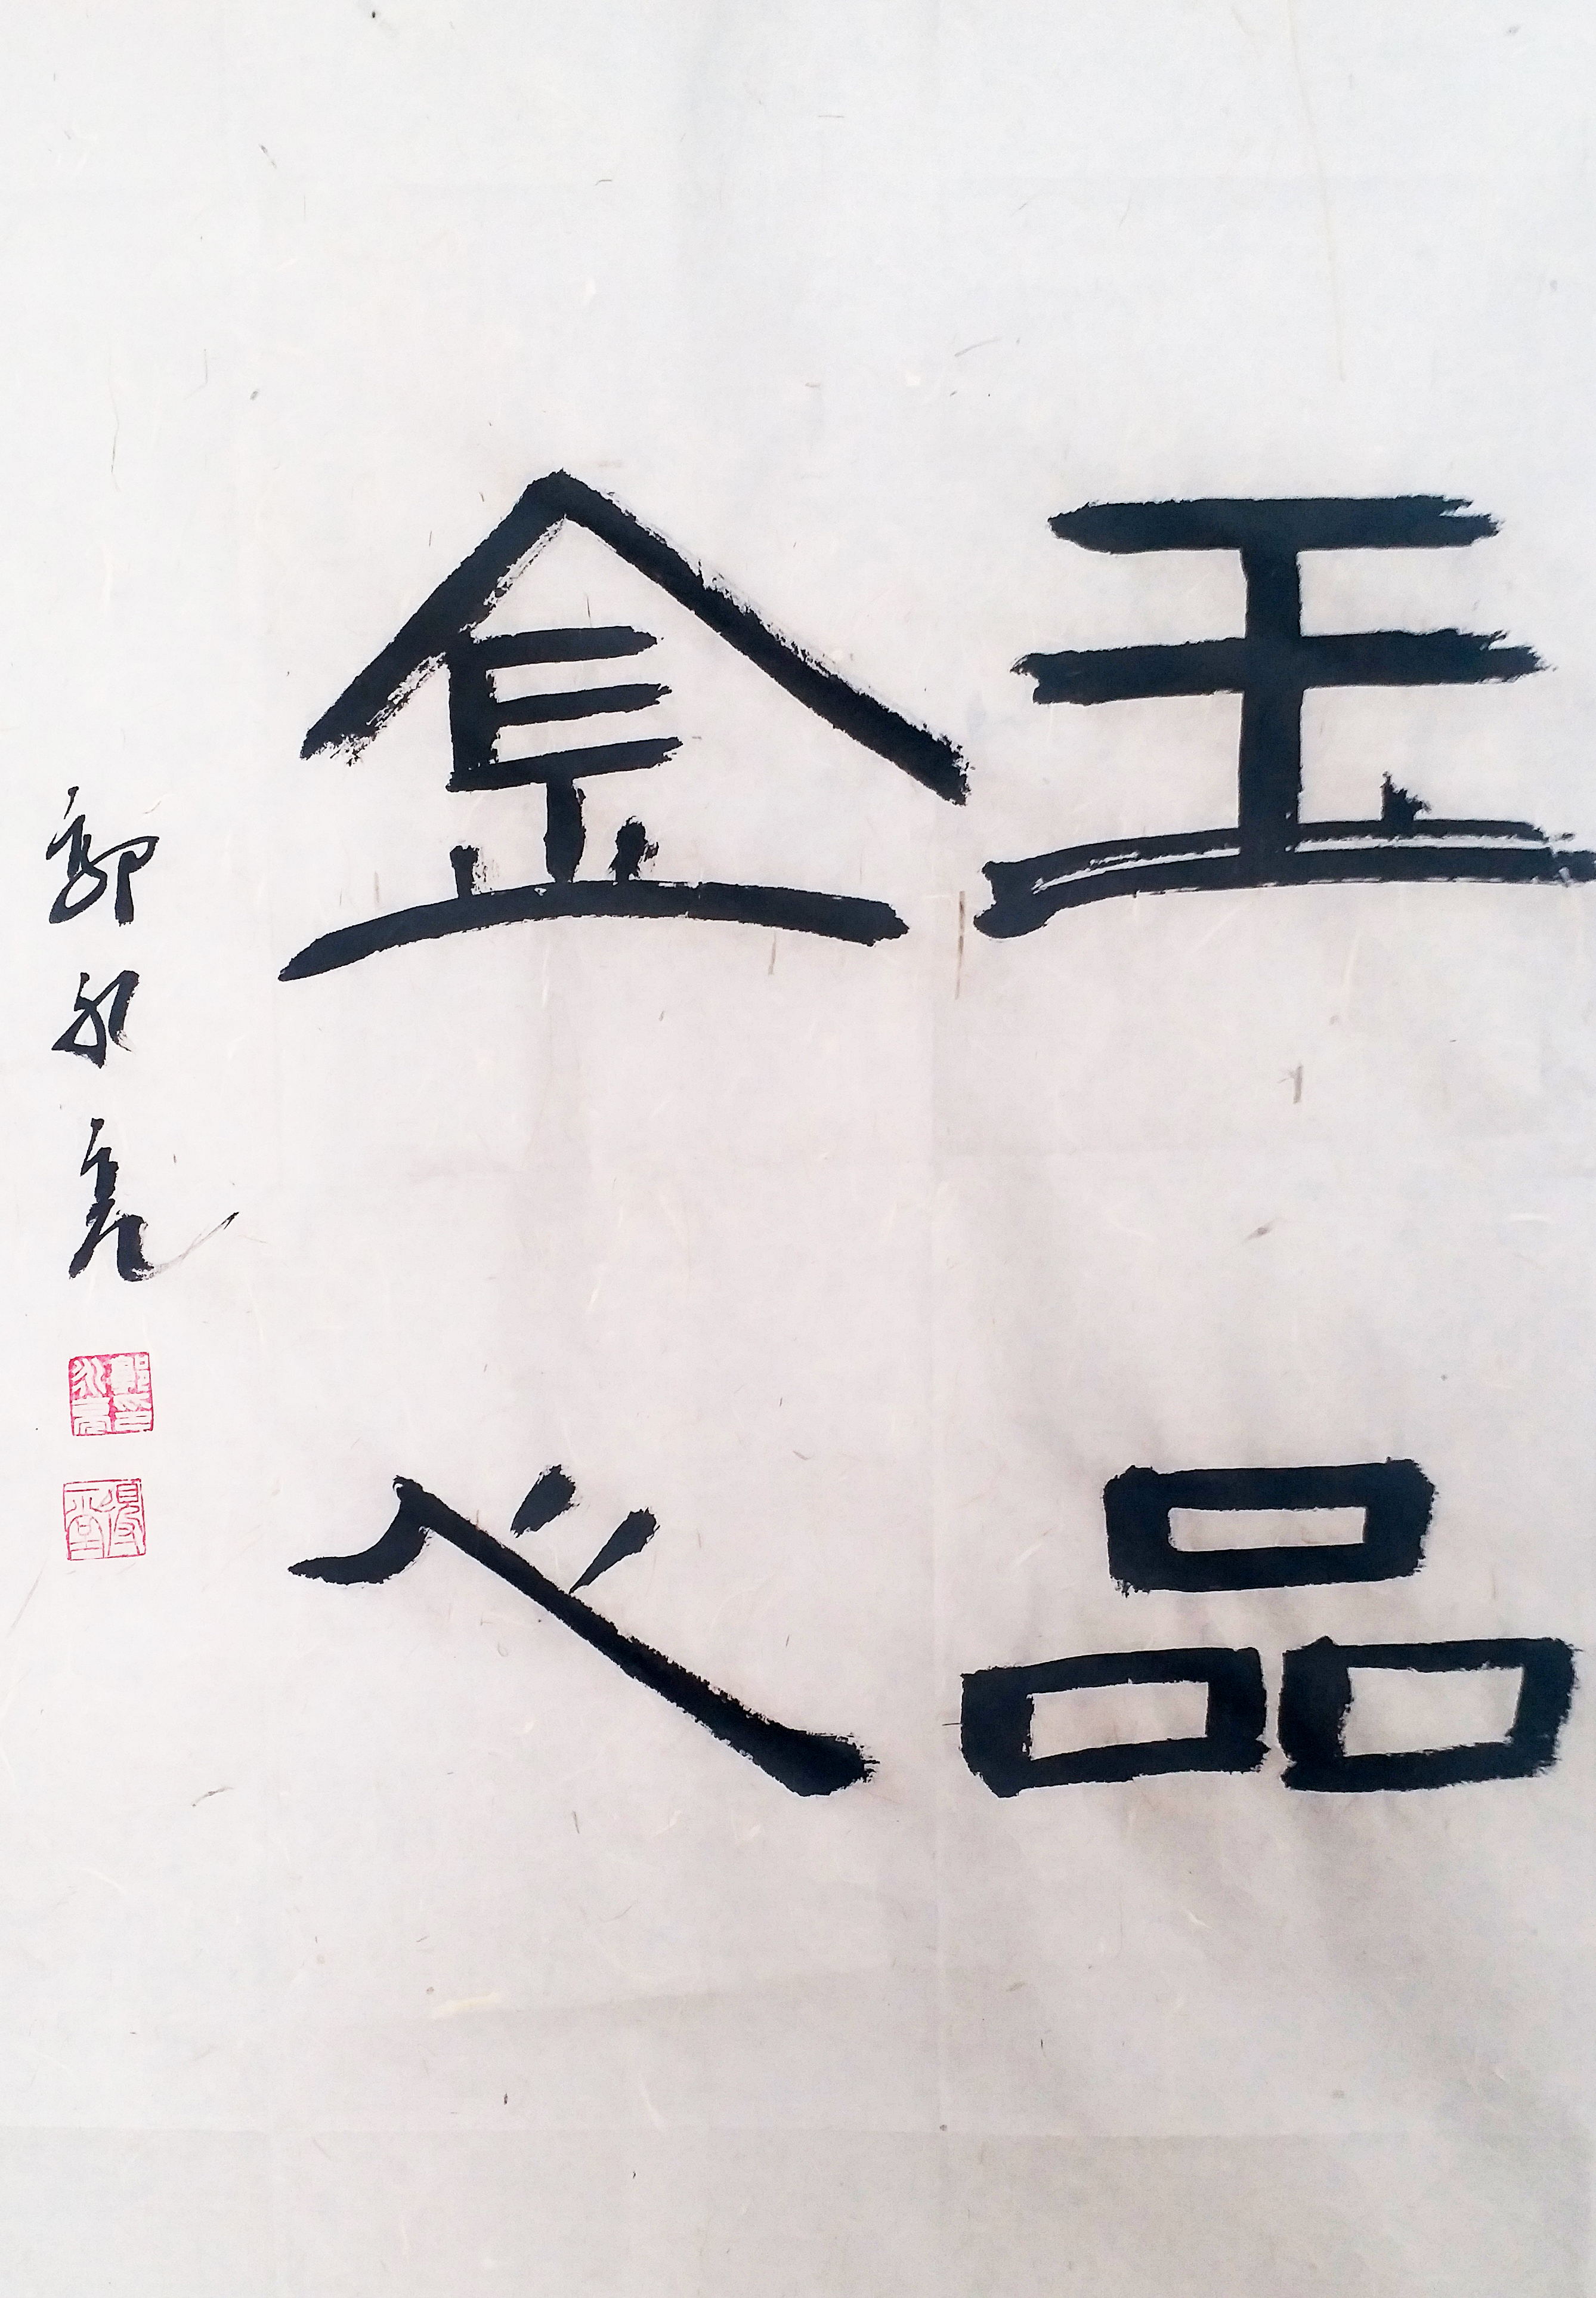 玉品
金心
郭永亮